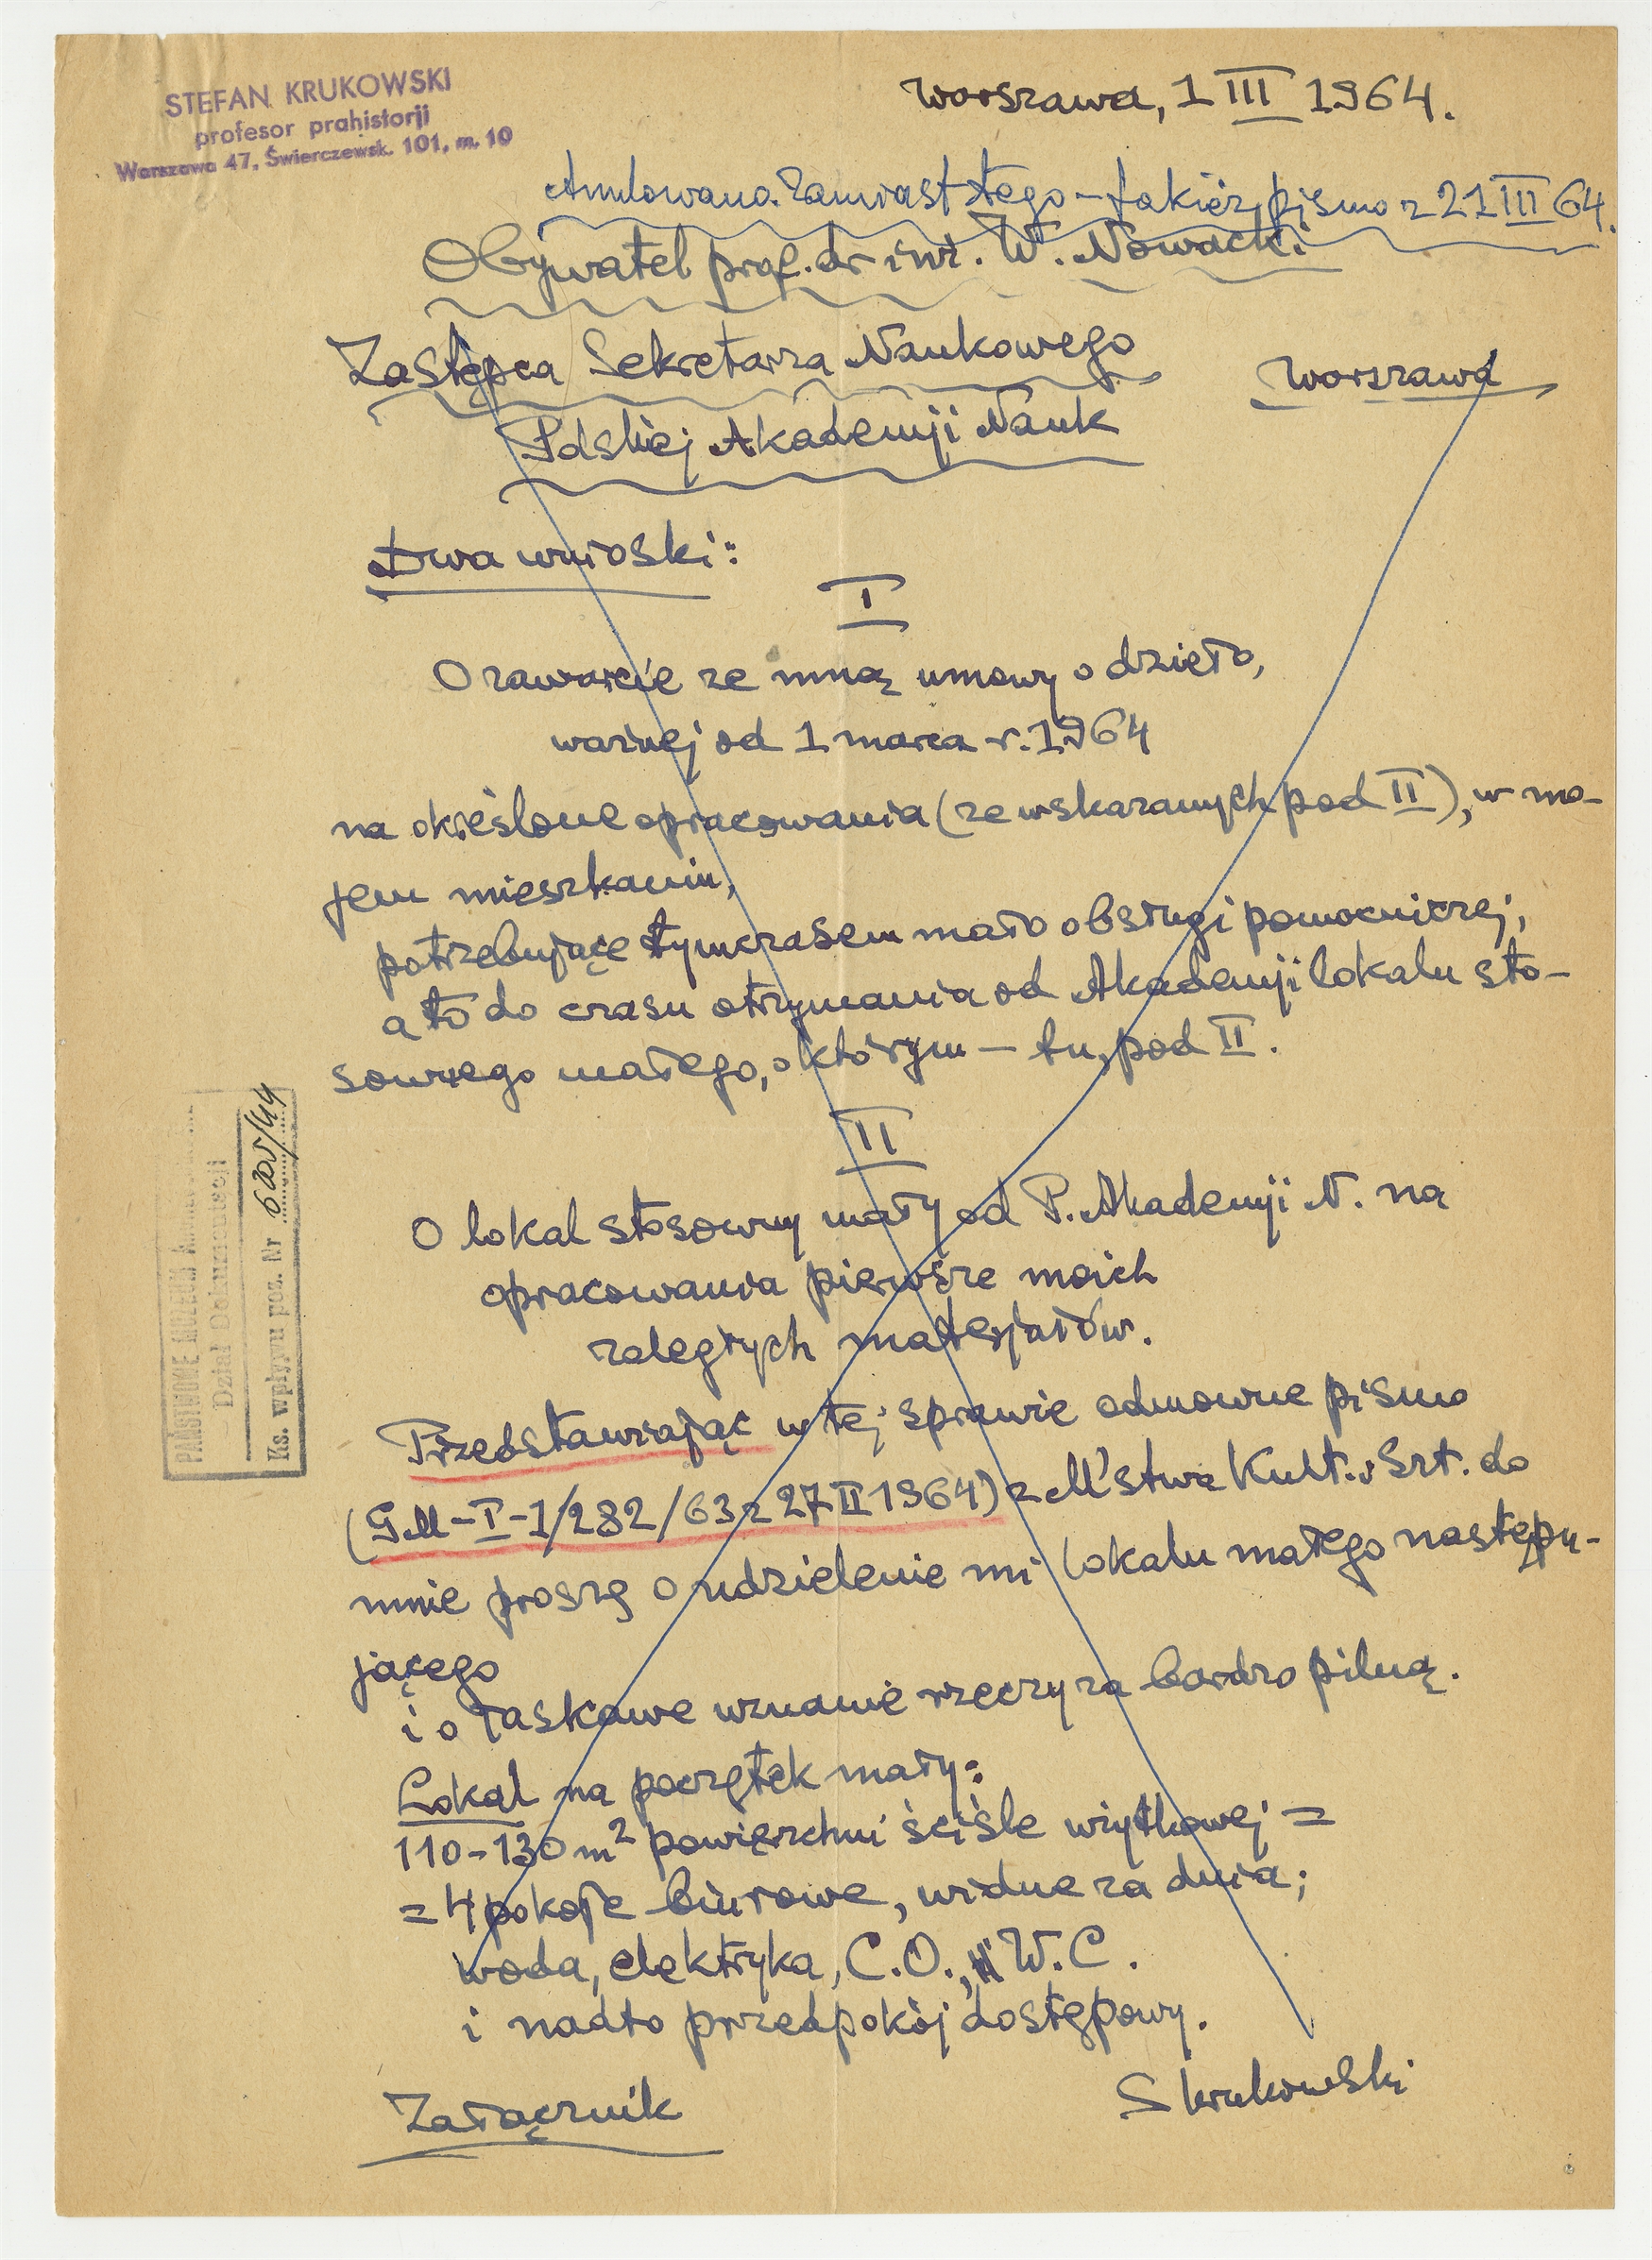 STEFAN KRUKOWSKI
profesor prahistorji
Warszawa 47, Świerczewsk. 101, m. 10
Warszawa, 1 III 1964.
Anulowano. Zamiast tego – takież pismo z 21 III 64.
Obywatel prof. dr inż. W. Nowacki
Zastępca Sekretarza Naukowego
Warszawa
Polskiej Akademji Nauk
Dwa wnioski:
I
O zawarcie ze mną umowy o dzieło,
ważnej od 1 marca r. 1964
na określone opracowania (ze wskazanych pod II), w mo-
jem mieszkaniu,
potrzebujące tymczasem mało obsługi pomocniczej,
a to do czasu otrzymania od Akademji lokalu sto-
sownego małego, o którym – tu, pod II.
II
O lokal stosowny mały od P. Akademji N. na
opracowania pierwsze moich
zaległych materjałów.
Przedstawiając w tej sprawie odmowne pismo
(GM-I-1/282/63 z 27 II 1964) z M'stwa Kult. i Szt. do
mnie proszę o udzielenie mi lokalu małego następu-
jącego
i o łaskawe uznanie rzeczy za bardzo pilną.
Lokal na początek mały:
110-130 m² powierzchni ściśle użytkowej =
= 4 pokoje biurowe, widne za dnia;
woda, elektryka, C.O., W.C.
i nadto przedpokój dostępowy.
SKrukowski
Załącznik
PAŃSTWOWE MUZEUM
Dział Dokumentacji
Ks. wpływu poz. Nr